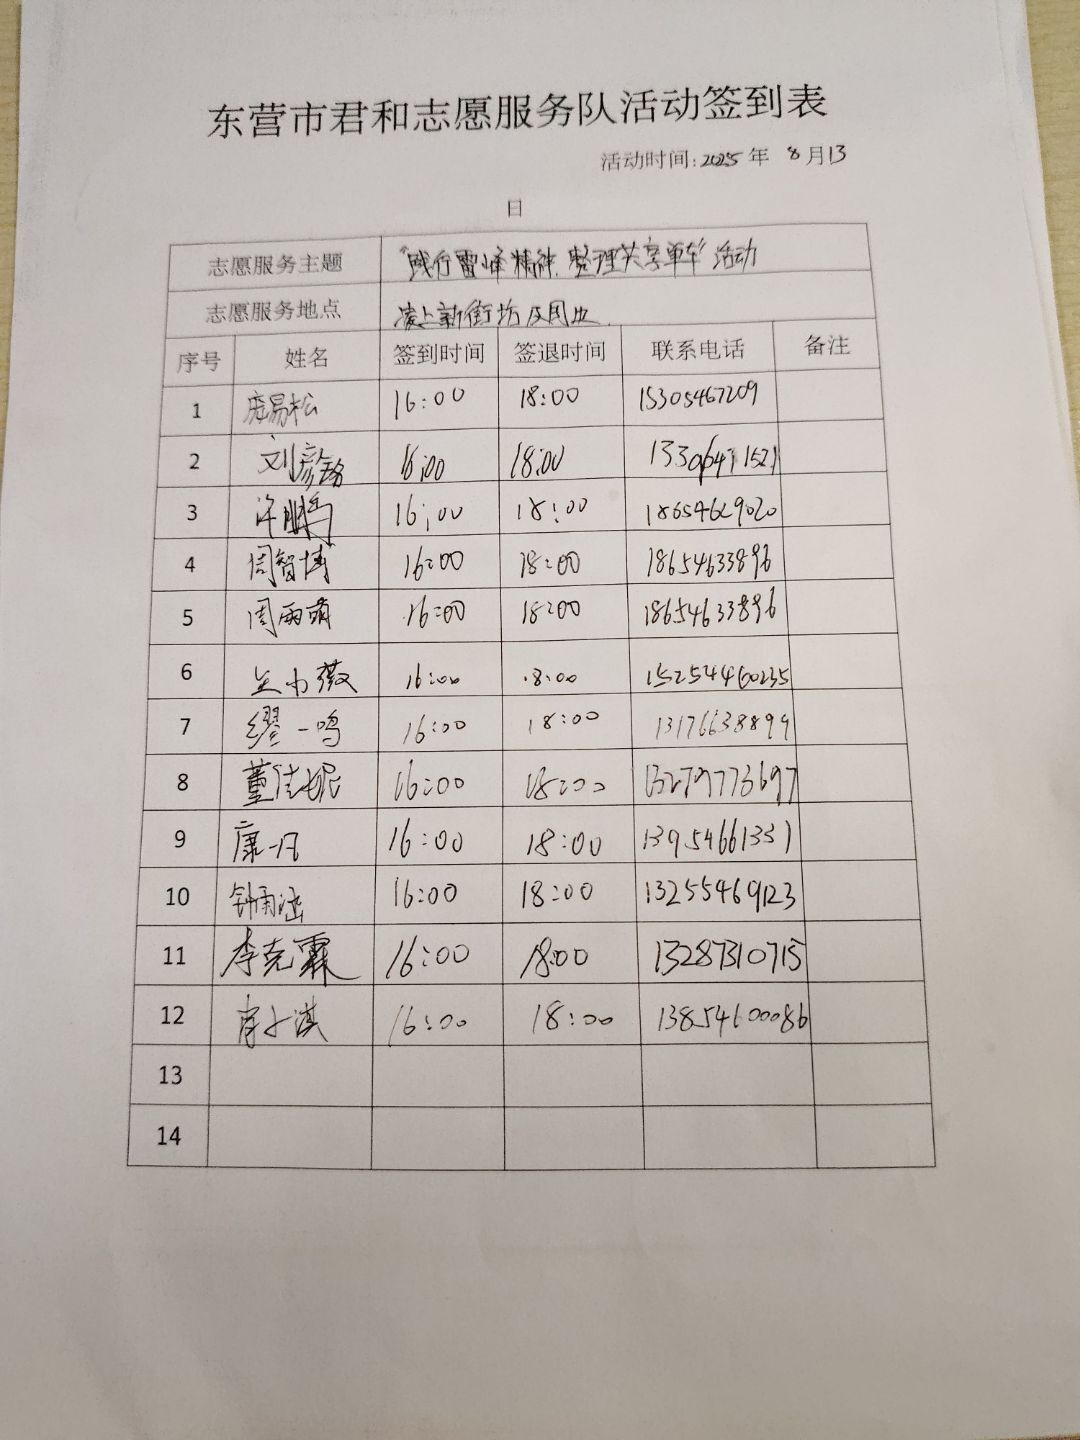 东营市君和志愿服务队活动签到表
活动时间:2025年 8月13
日
志愿服务主题 "践行雷锋精神,整理共享单车"活动
志愿服务地点 凌上新街坊及周边
序号 姓名 签到时间 签退时间 联系电话 备注
1 庞易松 16:00 18:00 15305467209
2 刘彦铭 16:00 18:00 1521
3 许鹏 16:00 18:00 18654629020
4 周智博 16:00 18:00 18654633896
5 周雨萌 16:00 18:00 18654633896
6 薇 16:00 18:00 15254460235
7 缪一鸣 16:00 18:00 13176638899
8 董佳妮 16:00 18:00 13279773697
9 康一凡 16:00 18:00 13954661331
10 钟雨涵 16:00 18:00 13255469123
11 李克霖 16:00 18:00 13287310715
12 肖子淇 16:00 18:00 13854600086
13
14